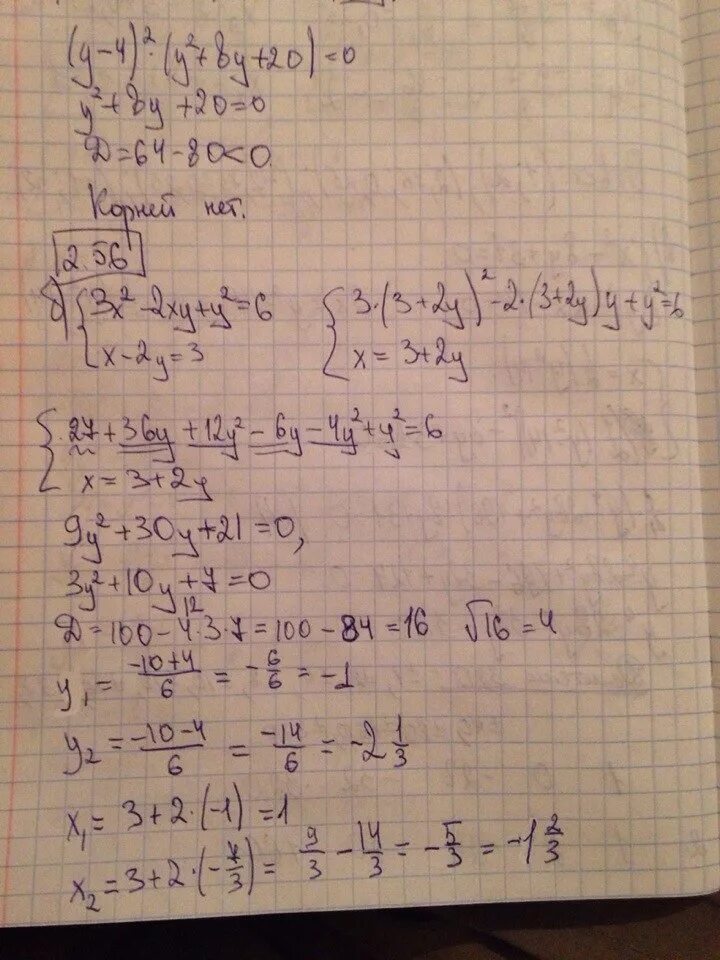 (y-4)²·(y²+8y+20)=0
y²+8y+20=0
Д=64-80<0
Корней нет.
2.56
б) { 3x²-2xy+y²=6   { 3·(3+2y)²-2·(3+2y)y+y²=6
x-2y=3   x=3+2y
{ 27+36y+12y²-6y-4y²+y²=6
x=3+2y
9y²+30y+21=0,
3y²+10y+7=0
12
Д=100-4·3·7=100-84=16   √16=4
y₁=(-10+4)/6=-6/6=-1
y₂=(-10-4)/6=-14/6=-2 1/3
x₁=3+2·(-1)=1
x₂=3+2·(-7/3)=9/3-14/3=-5/3=-1 2/3